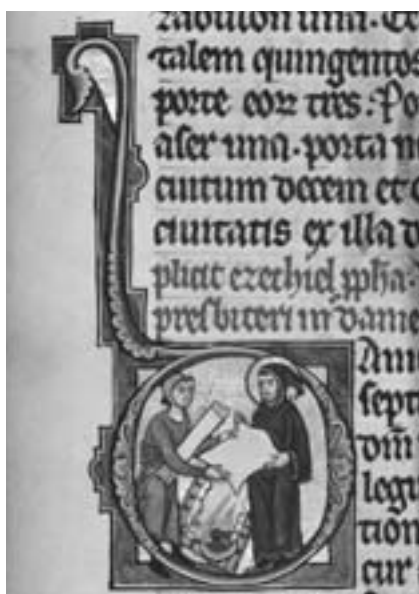 zabulon una. Et
talem quingentos
porte eorum tres. Po
aser una. porta n
cuitum decem et
ciuitatis ex illa d
plicit ezechiel ppha.
presbiteri in danie
Ani
sept
dm̄
legi
tion
cur